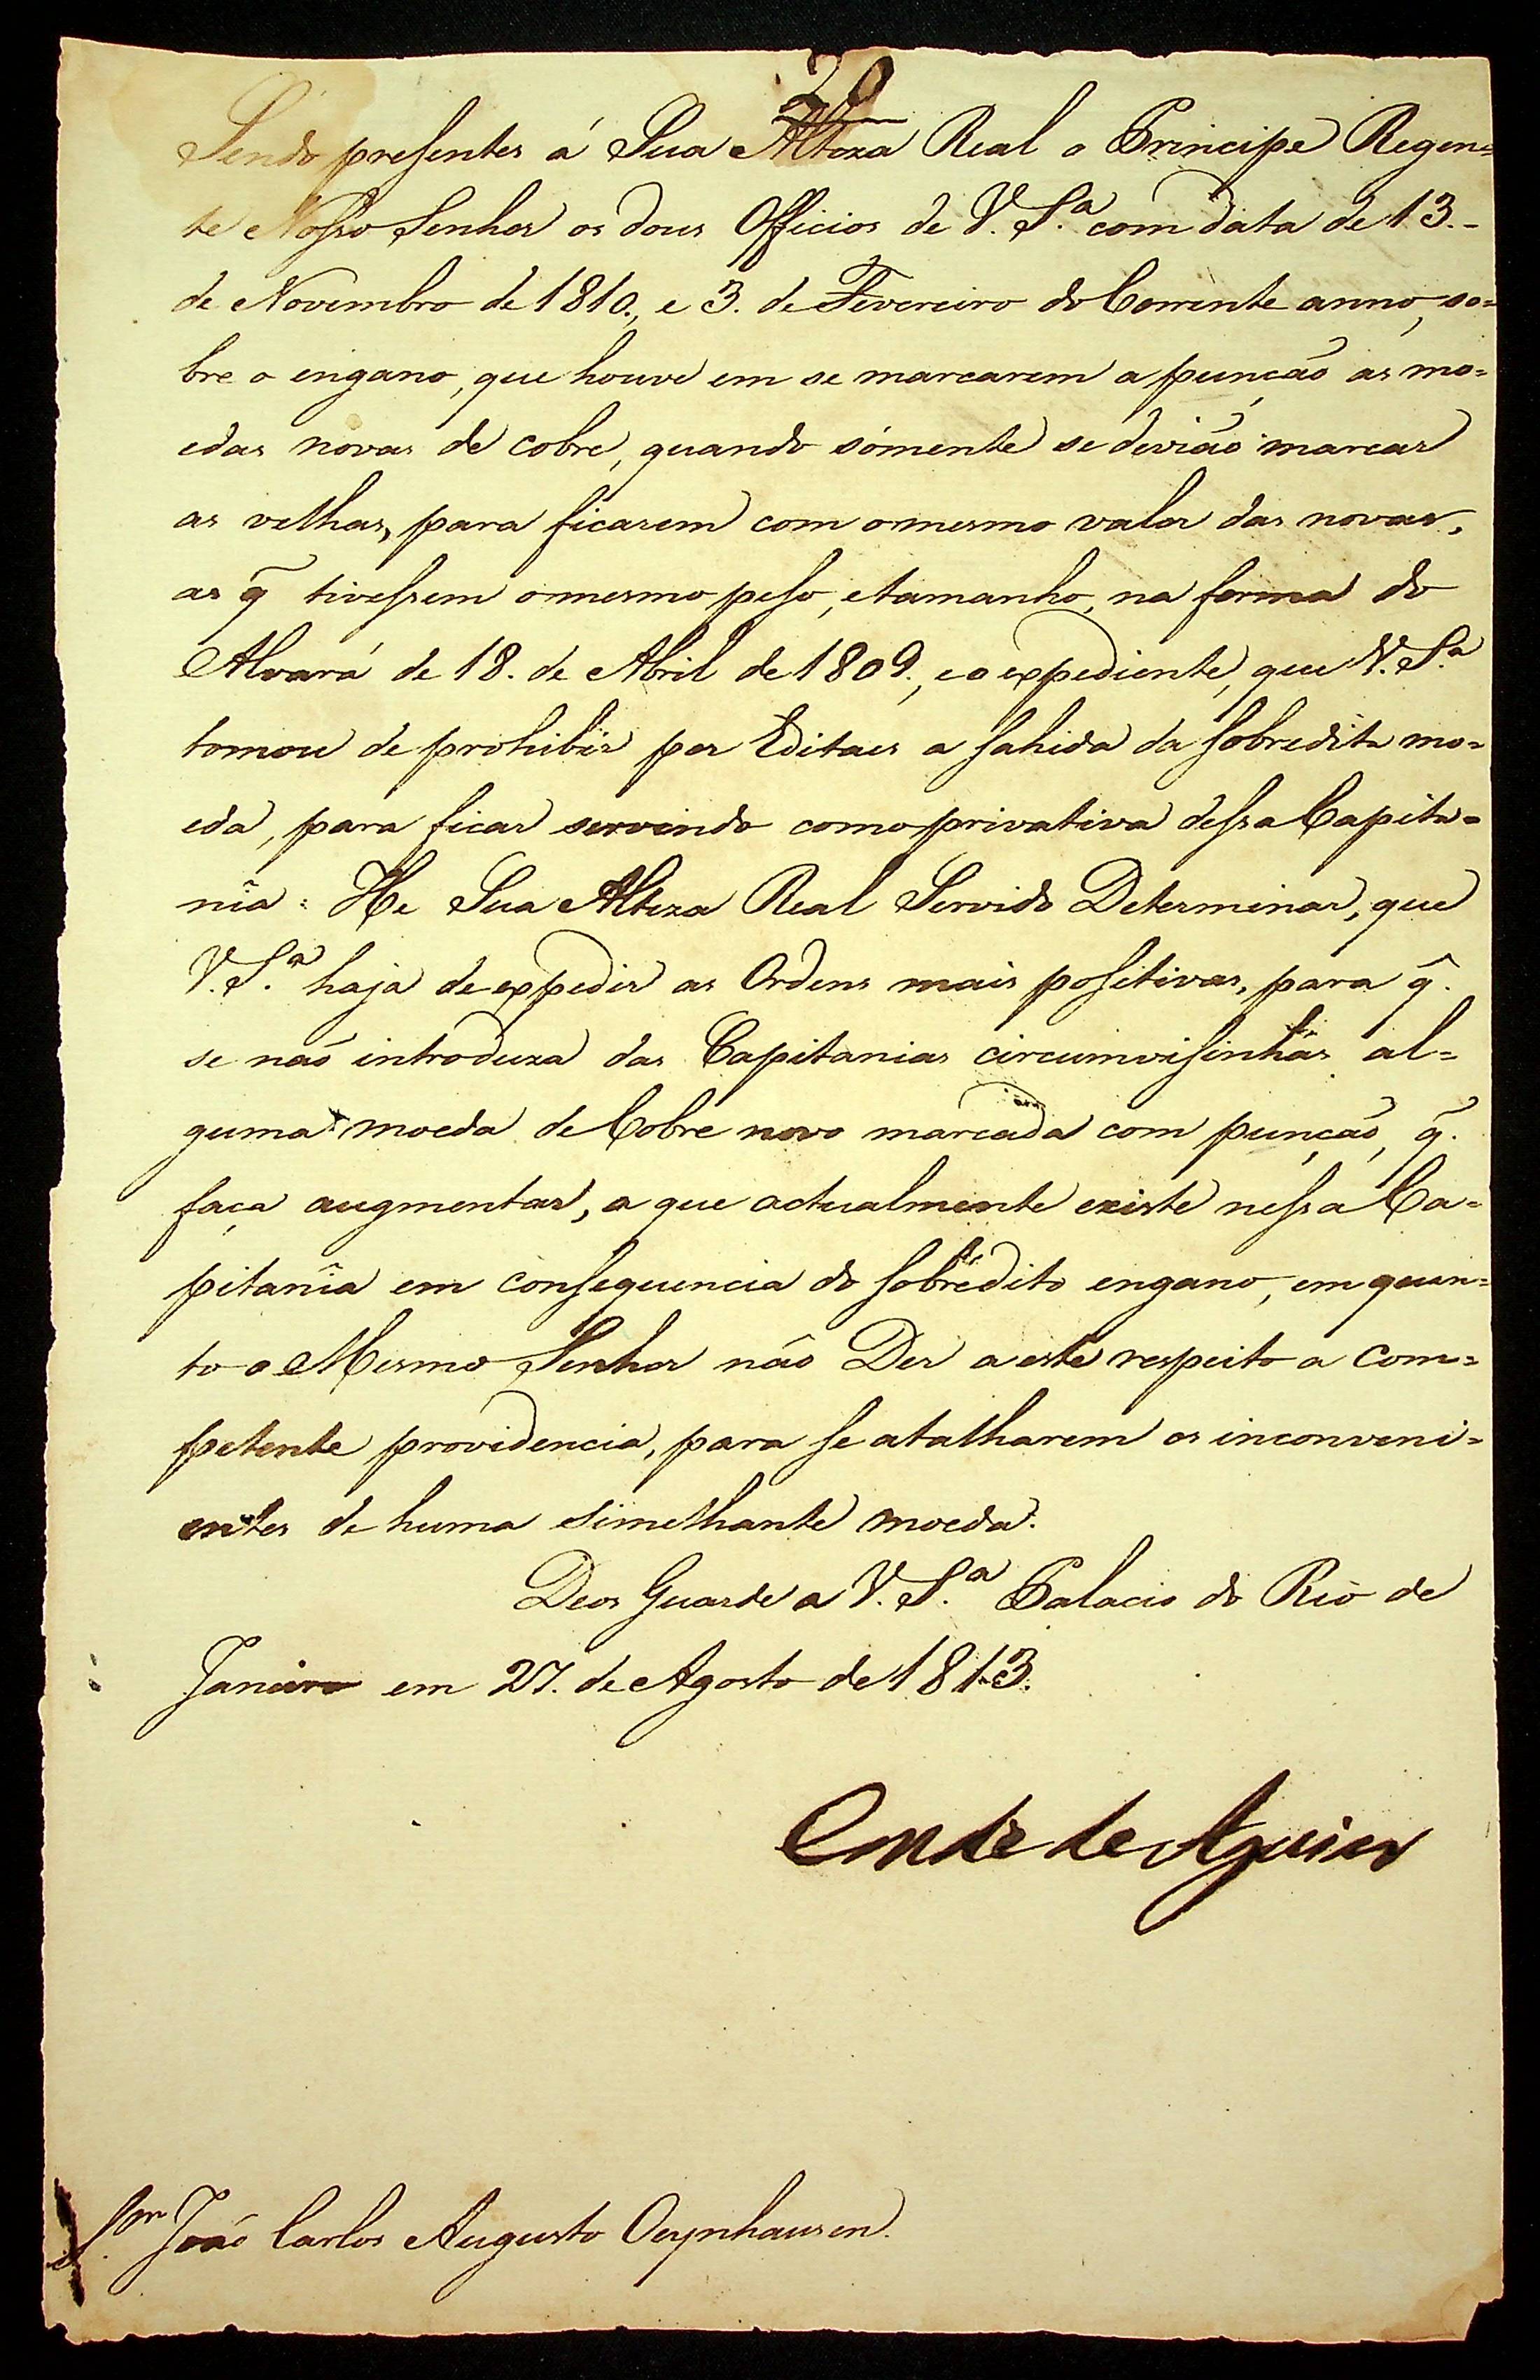 20
Sendo presentes á Sua Alteza Real o Principe Regen=
te Nosso Senhor os dous Officios de V. S.ª com data de 13.-
de Novembro de 1810., e 3. de Fevereiro do Corrente anno, so=
bre o engano, que houve em se marcarem a punção as mo=
edas novas de cobre, quando sómente se devião marcar
as velhas, para ficarem com o mesmo valor das novas,
as q̃ tivessem o mesmo peso, e tamanho, na forma do
Alvará de 18. de Abril de 1809., e o expediente, que V. S.ª
tomou de prohibir por Editaes a sahida da sobredita mo=
eda, para ficar servindo como privativa dessa Capita=
nîa: He Sua Alteza Real Servido Determinar, que
V. S.ª haja de expedir as Ordens mais positivas, para q̃.
se não introduza das Capitanias circumvisinhas al=
guma moeda de Cobre novo marcada com punção, q̃.
faça augmentar, a que actualmente existe nessa Ca=
pitanîa em consequencia do sobredito engano, em quan=
to o Mesmo Senhor não Der a este respeito a com=
petente providencia, para se atalharem os inconveni=
entes de huma similhante moeda.
Deos Guarde a V. S.ª Palacio do Rio de
Janeiro em 27. de Agosto de 1813.
Conde de Aguiar
S.ᵒʳ João Carlos Augusto Oeynhausen.